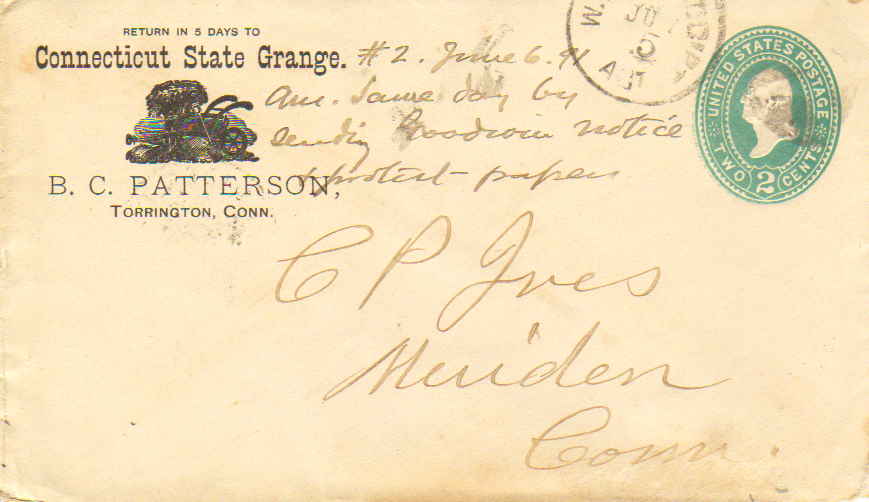 RETURN IN 5 DAYS TO
Connecticut State Grange.
B. C. PATTERSON,
TORRINGTON, CONN.
#2. June 6. 91
Ans. Same day by
sending Goodwin notice
& protest papers
JU
5
UNITED STATES POSTAGE
TWO 2 CENTS
C P Ives
Meriden
Conn.